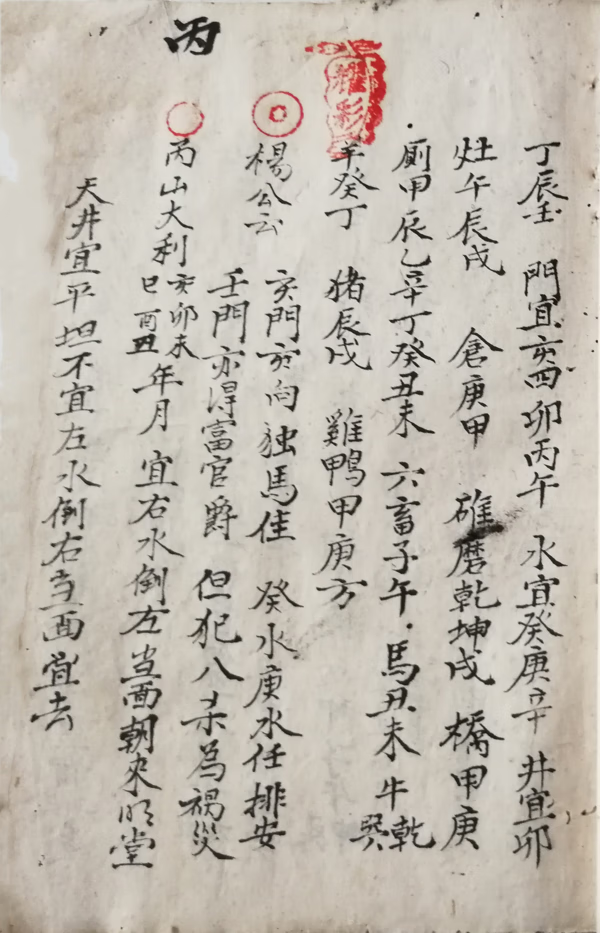 丙
丁辰壬 門宜亥酉卯丙午 水宜癸庚辛 井宜卯
灶午辰戌 倉庚甲 碓磨乾坤戌 橋甲庚
廁甲辰乙辛丁癸丑未 六畜子午 馬丑未 牛乾巽
羊癸丁 猪辰戌 雞鴨甲庚方
楊公云 亥門亥向独馬佳 癸水庚水任排安
壬門亦得富官爵 但犯八杀為禍災
丙山大利 亥卯未巳酉丑年月 宜右水倒左 当面朝來明堂
天井宜平坦不宜左水倒右当面堂去